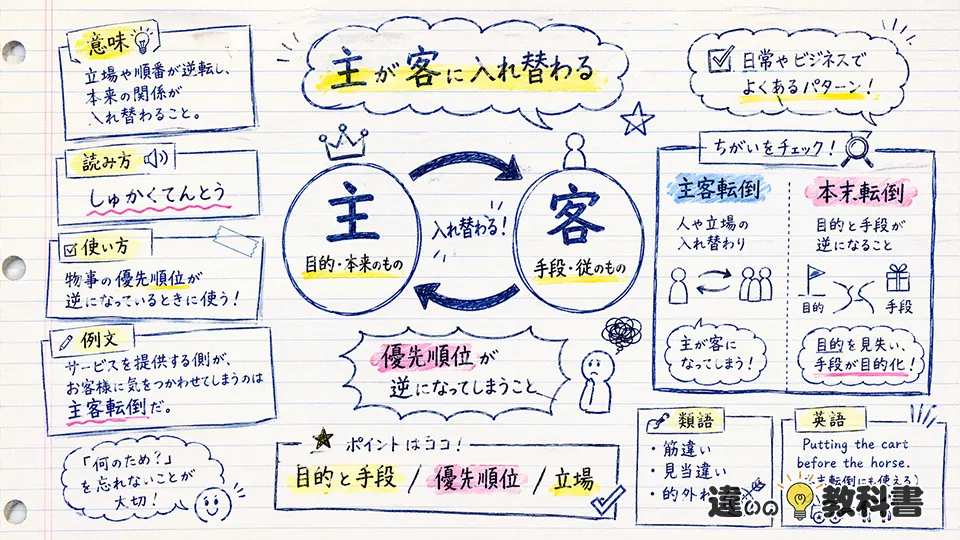 主が客に入れ替わる
意味
立場や順番が逆転し、
本来の関係が
入れ替わること。
読み方
しゅかくてんとう
使い方
物事の優先順位が
逆になっているときに使う！
例文
サービスを提供する側が、
お客様に気をつかわせてしまうのは
主客転倒だ。
「何のため？」
を忘れないことが
大切！
主
目的・本来のもの
入れ替わる！
客
手段・従のもの
優先順位が
逆になってしまうこと
ポイントはココ！
目的と手段 / 優先順位 / 立場
日常やビジネスで
よくあるパターン！
ちがいをチェック！
主客転倒
人や立場の
入れ替わり
主が客に
なってしまう！
本末転倒
目的と手段が
逆になること
目的
手段
目的を見失い、
手段が目的化！
類語
・筋違い
・見当違い
・的外
英語
Putting the cart
before the horse.
転倒にも使える）
違いの教科書